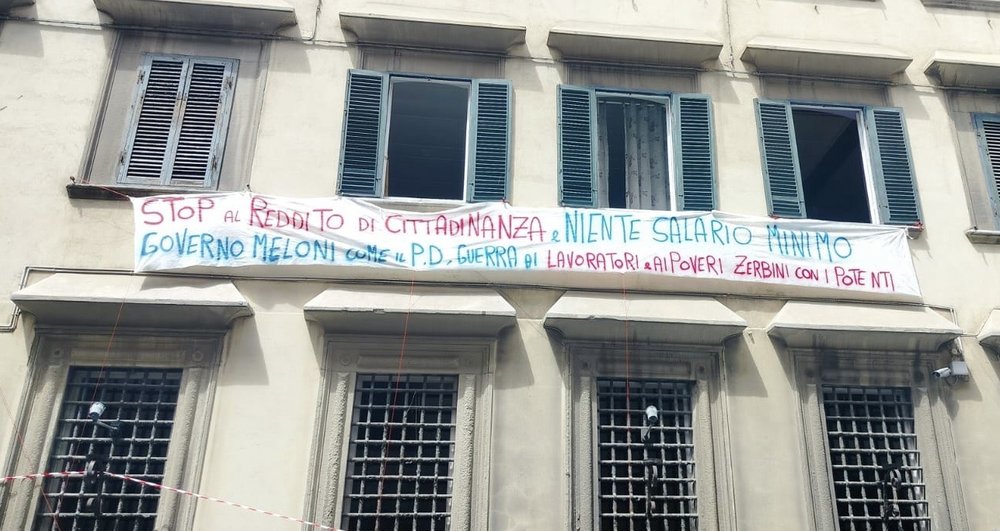 STOP AL REDDITO DI CITTADINANZA e NIENTE SALARIO MINIMO
GOVERNO MELONI COME IL P.D. GUERRA AI LAVORATORI e AI POVERI ZERBINI CON I POTENTI